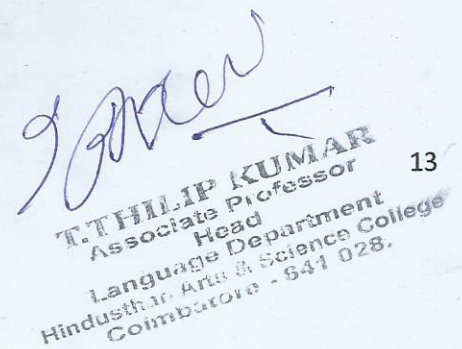 T.THILIP KUMAR
Associate Professor
Head
Language Department
Hindusthan Arts & Science College
Coimbatore - 641 028.
13